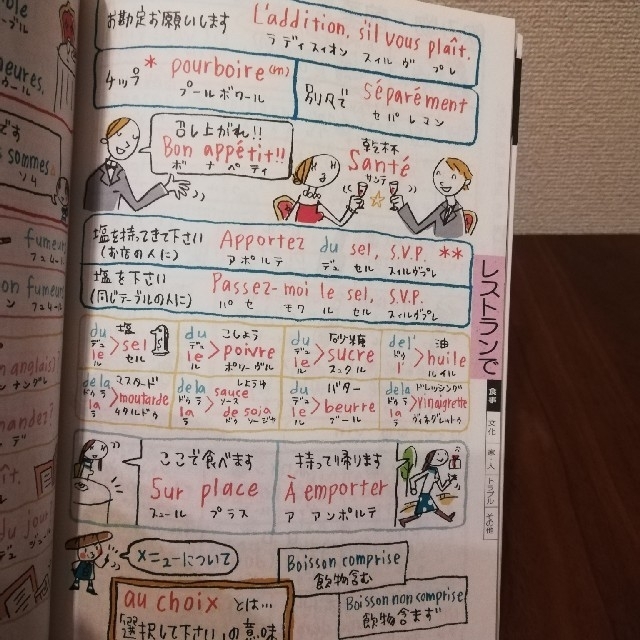 お勘定お願いします
L'addition, s'il vous plaît.
ラディスィオン スィル ヴ プレ
チップ
* pourboire (m)
プールボワール
別々で
séparément
セパレマン
召し上がれ!!
Bon appétit!!
ボ ナ ペティ
乾杯
Santé
サンテ
塩を持ってきて下さい
(お店の人に)
Apportez du sel, S.V.P. **
アポルテ デュ セル スィルヴプレ
塩を下さい
(同じテーブルの人に)
Passez-moi le sel, S.V.P.
パセ モワ ル セル スィルヴプレ
レストランで
du
デュ
le
ル
塩
sel
セル
du
デュ
le
ル
こしょう
poivre
ポワーヴル
du
デュ
le
ル
砂糖
sucre
スュクル
de l'
ドゥ
l'
油
huile
ユイル
de la
ドゥ ラ
la
ラ
マスタード
moutarde
ムタルドゥ
de la
ドゥ ラ
la
ラ
しょうゆ
sauce
ソース
de soja
ドゥ ソージャ
du
デュ
le
ル
バター
beurre
ブール
de la
ドゥ ラ
la
ラ
ドレッシング
vinaigrette
ヴィネグレットゥ
食事
文化
家・人
トラブル
その他
ここで食べます
Sur place
スュール プラス
持って帰ります
À emporter
ア アンポルテ
メニューについて
Boisson comprise
飲物含む
Boisson non comprise
飲物含まず
au choix とは…
「選択して下さい」の意味